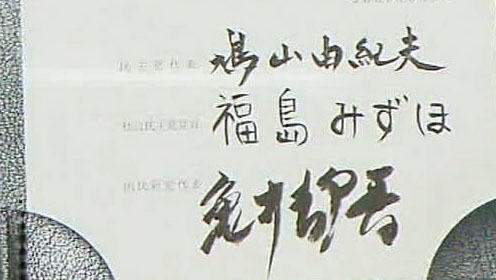 民主党代表 鳩山由紀夫
社会民主党党首 福島みずほ
国民新党代表 亀井静香